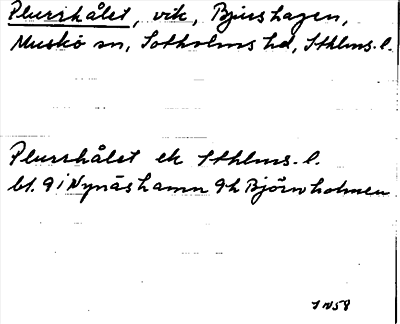 Plurrhålet, vik, Bjurshagen,
Muskö sn, Sotholms hd, Sthlms. l.
Plurrhålet ek Sthlms. l.
bl. 9 i Nynäshamn 9h Björnholmen
JN58